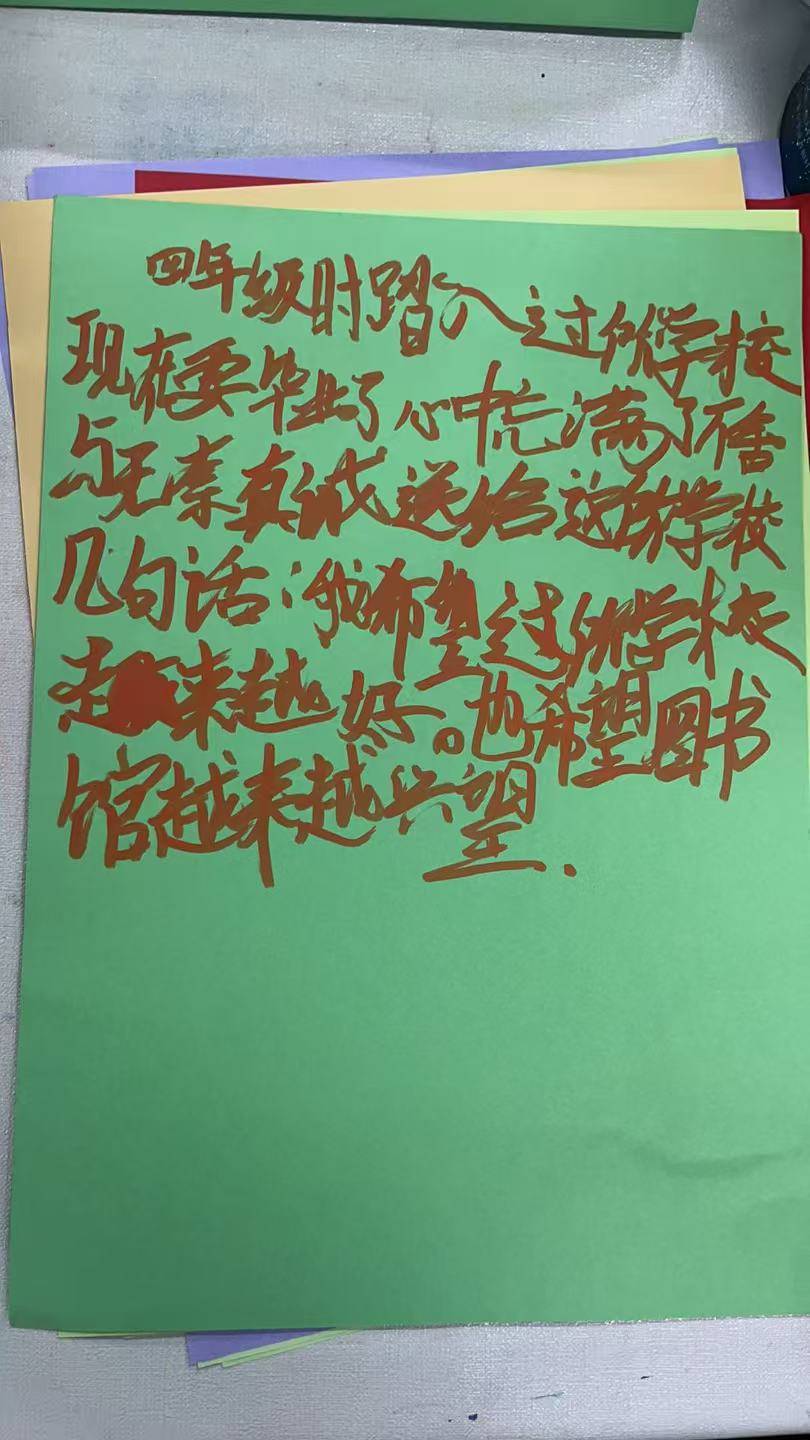 四年级时踏入过所学校
现在要毕业了心中充满了不舍
与无奈真诚送给这所学校
几句话:我希望过所学校
越来越好。也希望图书
馆越来越兴望.